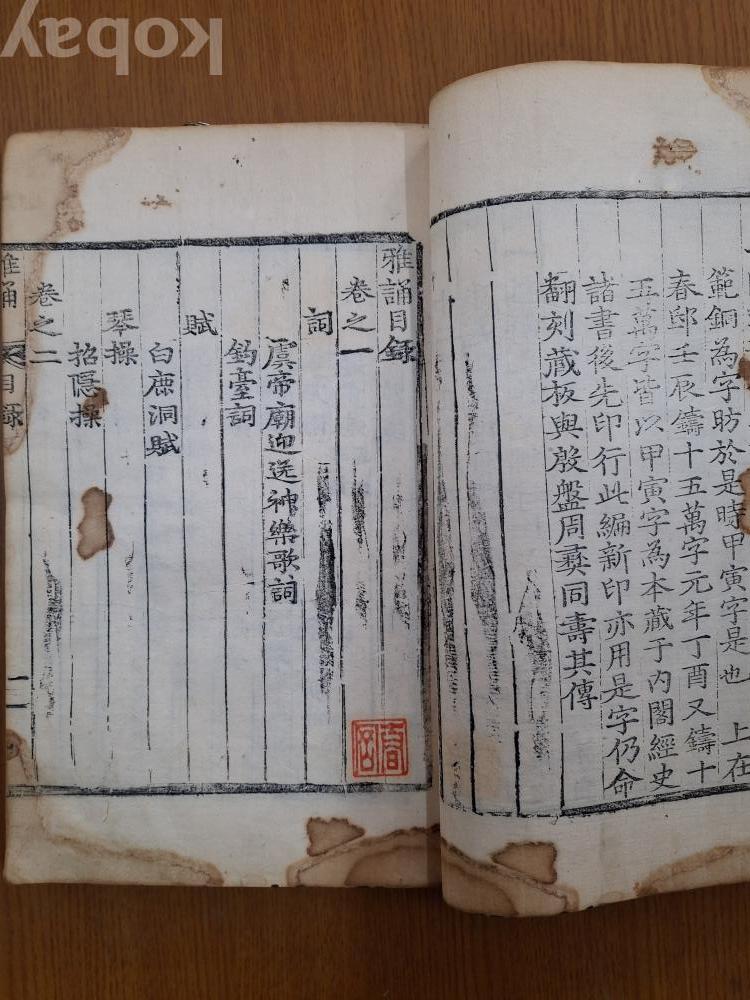 範銅為字昉於是時甲寅字是也　上在
春邸壬辰鑄十五萬字元年丁酉又鑄十
五萬字皆以甲寅字為本藏于内閣經史
諸書後先印行此編新印亦用是字仍命
翻刻藏板與殷盤周彝同壽其傳
雅誦目錄
卷之一
詞
虞帝廟迎送神樂歌詞
釣臺詞
賦
白鹿洞賦
琴操
招隱操
卷之二
雅誦　目錄　一
kobay